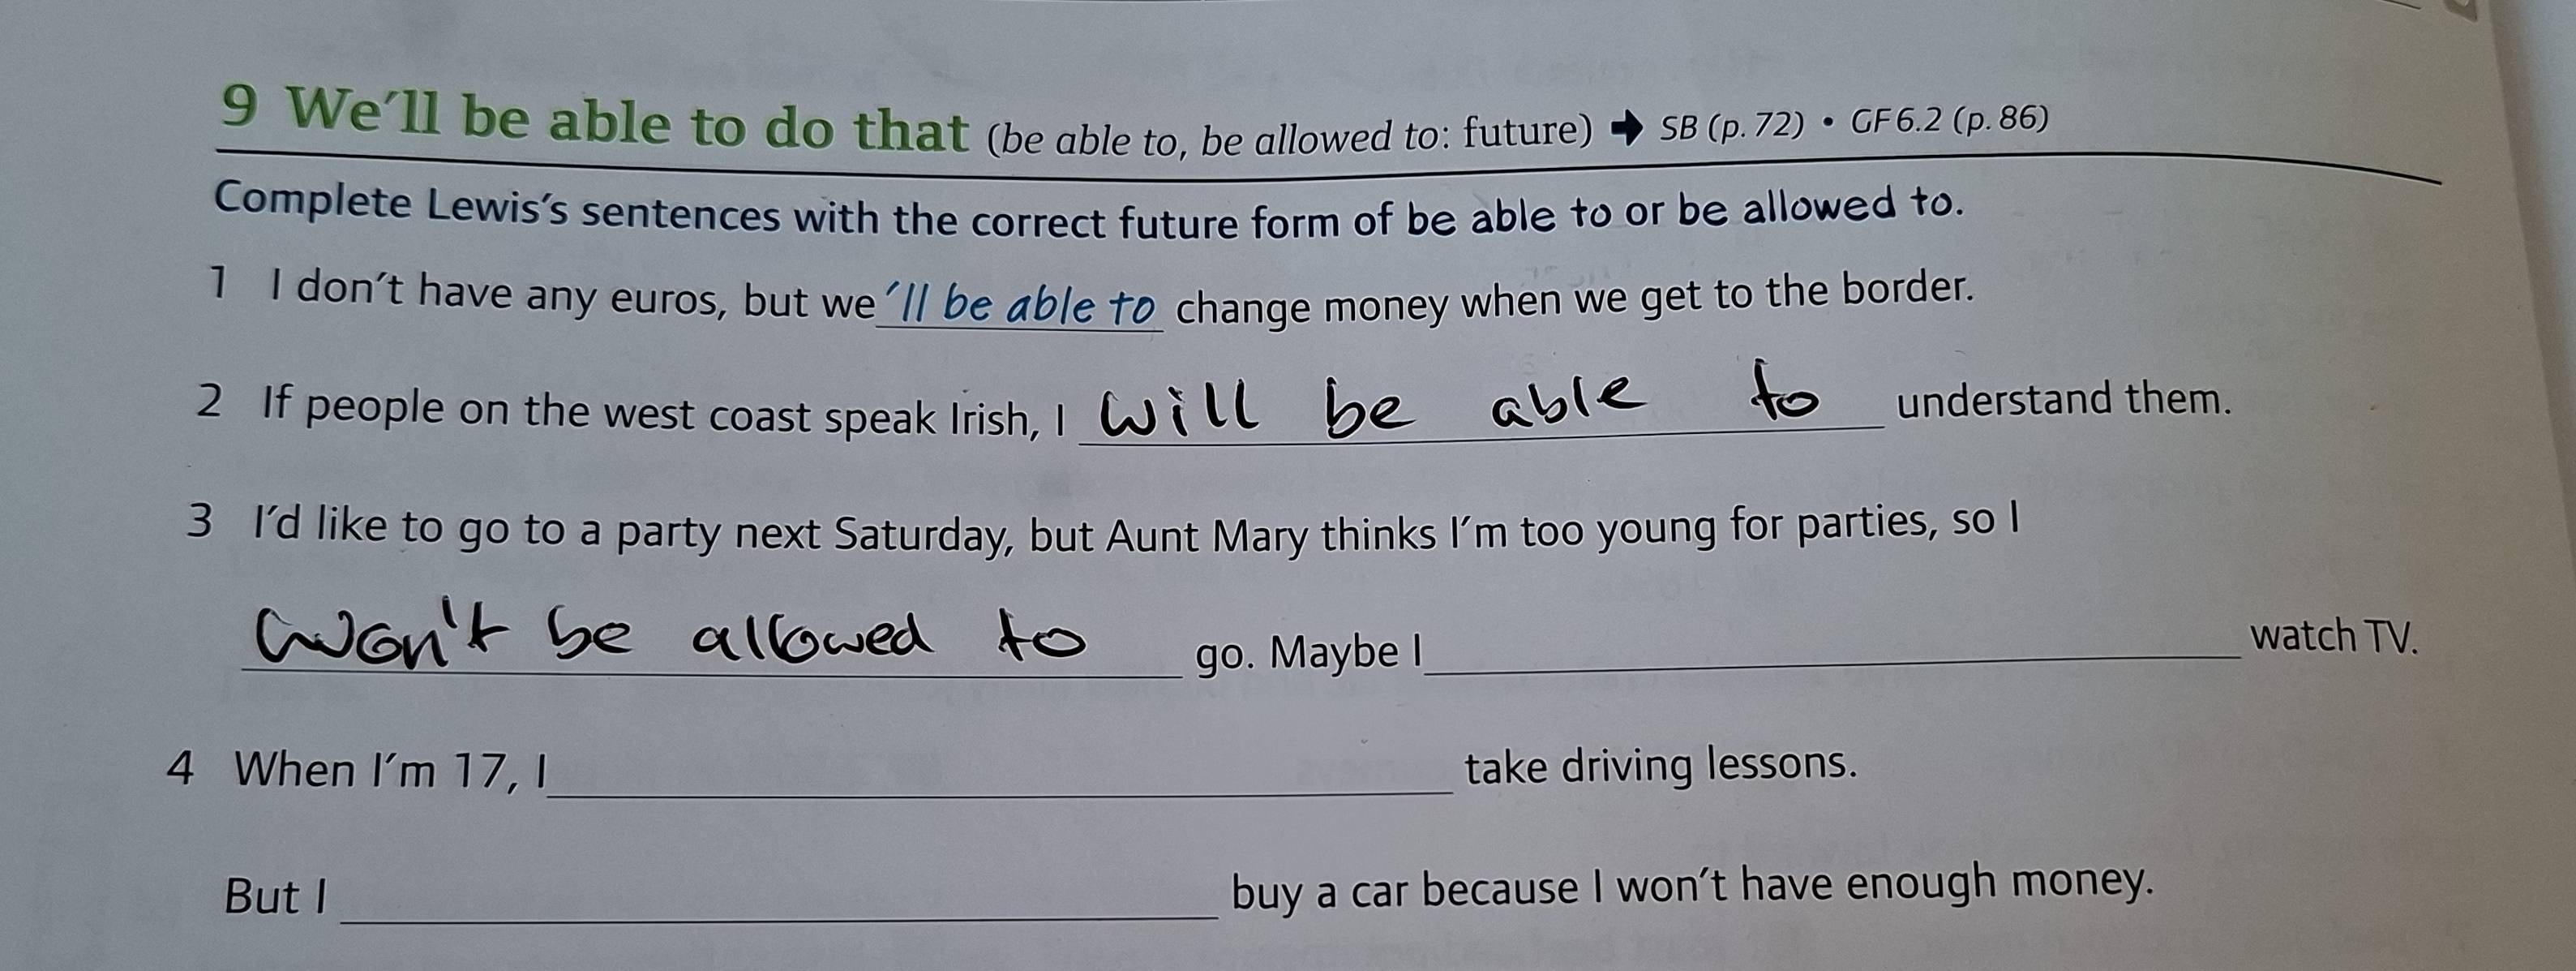 9 We'll be able to do that (be able to, be allowed to: future) ➔ SB (p. 72) • GF 6.2 (p. 86)
Complete Lewis's sentences with the correct future form of be able to or be allowed to.
1 I don't have any euros, but we 'll be able to change money when we get to the border.
2 If people on the west coast speak Irish, I will be able to understand them.
3 I'd like to go to a party next Saturday, but Aunt Mary thinks I'm too young for parties, so I
won't be allowed to go. Maybe I ______ watch TV.
4 When I'm 17, I ______ take driving lessons.
But I ______ buy a car because I won't have enough money.